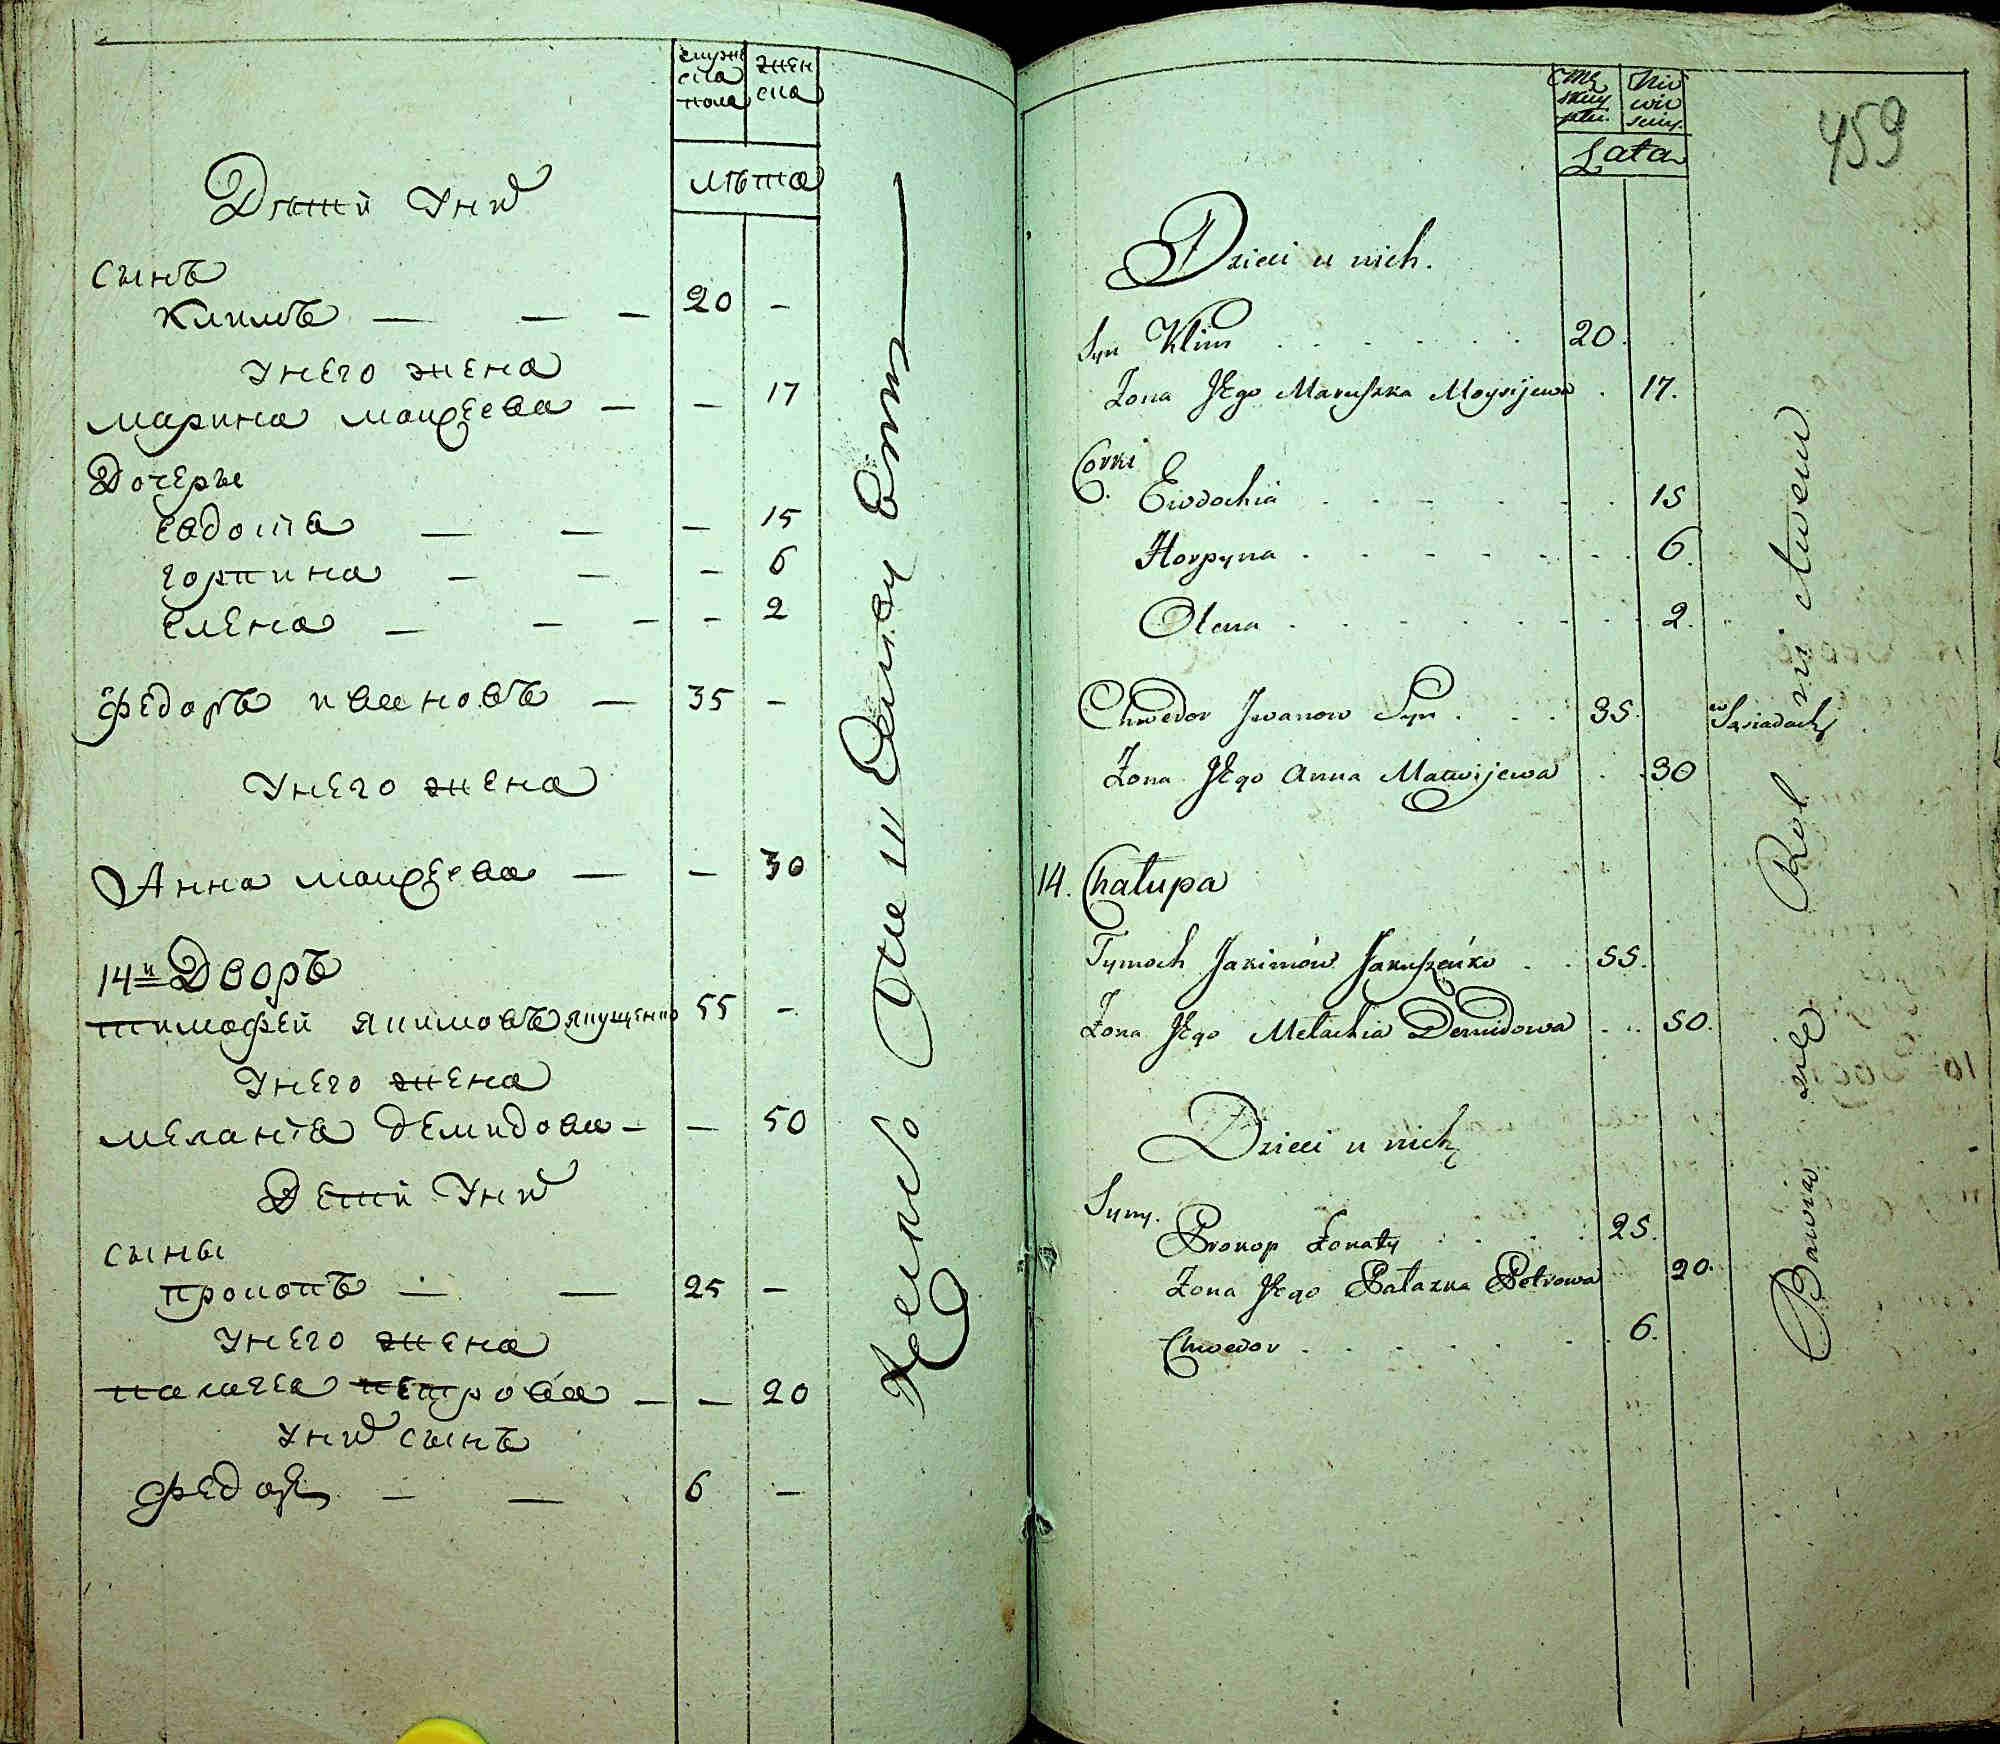 мужеска пола
женска
лѣта
Дѣти У них
сынъ
Климъ — — — 20 —
У него жена
Марина Моисеева — — 17
Дочеры
Евдокіа — — — 15
Горпина — — — 6
Елена — — — — 2
Федоръ Ивановъ — 35 —
У него жена
Анна Моисеева — — 30
14й Дворъ
Тимофей Якимовъ Якущенко 55 —
У него жена
Меланіа Демидова — — 50
Дети У них
сыны
Прокопъ — — 25 —
У него жена
Палагеа Петрова — — 20
У них сынъ
Федор — — 6 —
459
Męskiey płci
Niewieściey
Lata
Dzieci u nich.
Syn Klim 20.
Żona Jego Maruszka Moysijewa 17.
Corki
Ewdochia 15
Horpyna 6.
Ołena 2.
Chwedor Jwanow Syn 35. w Sąsiadach
Żona Jego Anna Matwijewa 30
14. Chałupa
Tymoch Jakimów Jakuszeńko 55.
Żona Jego Mełachia Demidowa 50.
Dzieci u nich
Syny.
Prokop Żonaty 25.
Żona Jego Pałazka Petrowa 20.
Chwedor 6.
Bawią się Rolnictwem